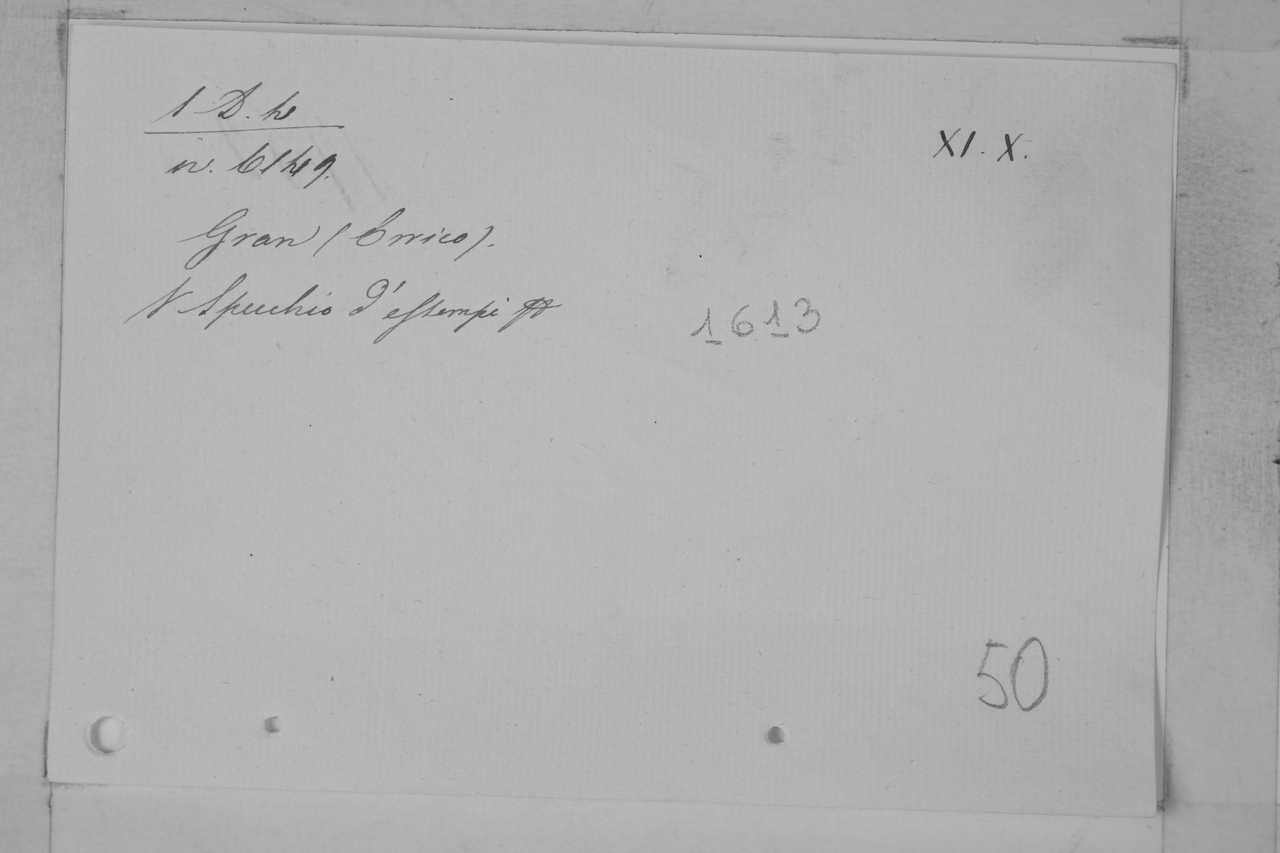 1 D. 4
XI. X.
n. 6149.
Gran (Errico).
Specchio d'essempi
1613
50